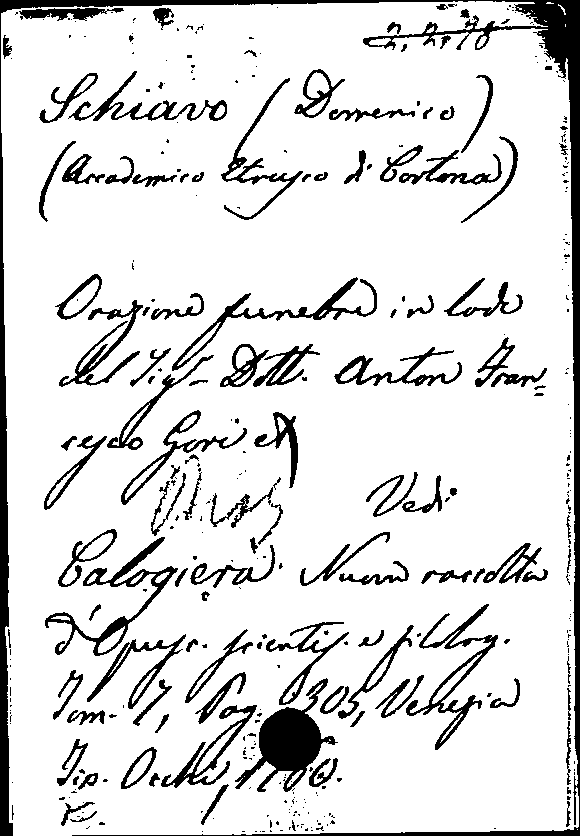 2. 2. 78
Schiavo (Domenico)
(Accademico Etrusco di Cortona)
Orazione funebre in lode
del Sigr Dott. Anton Fran=
cesco Gori
Vedi
Calogierà. Nuova raccolta
d'Opusc. scientif. e filolog.
Tom. 7, Pag. 305, Venezia
Tip. Occhi,